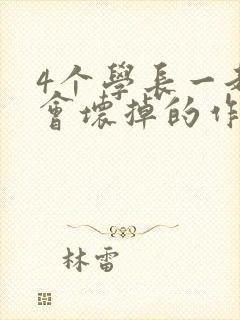 4个學長一
會壞掉的作
林雷